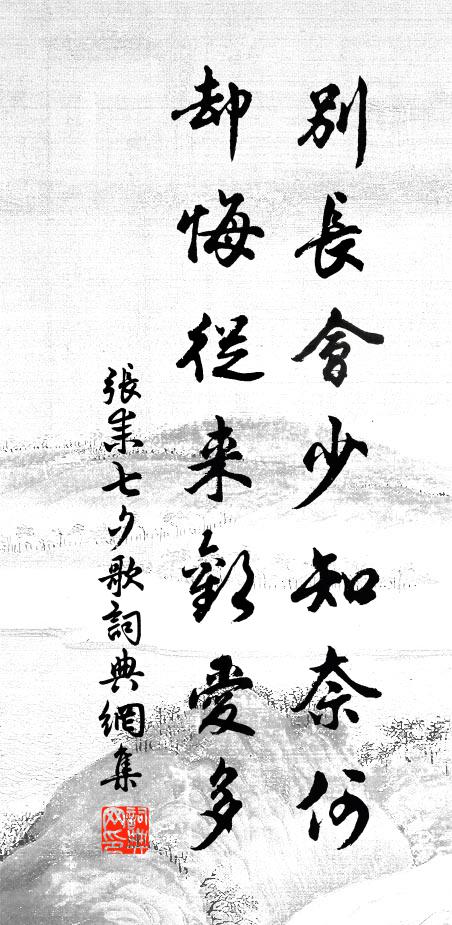 別長會少知奈何
却悔從来歡愛多
張耒七夕歌詞典網集